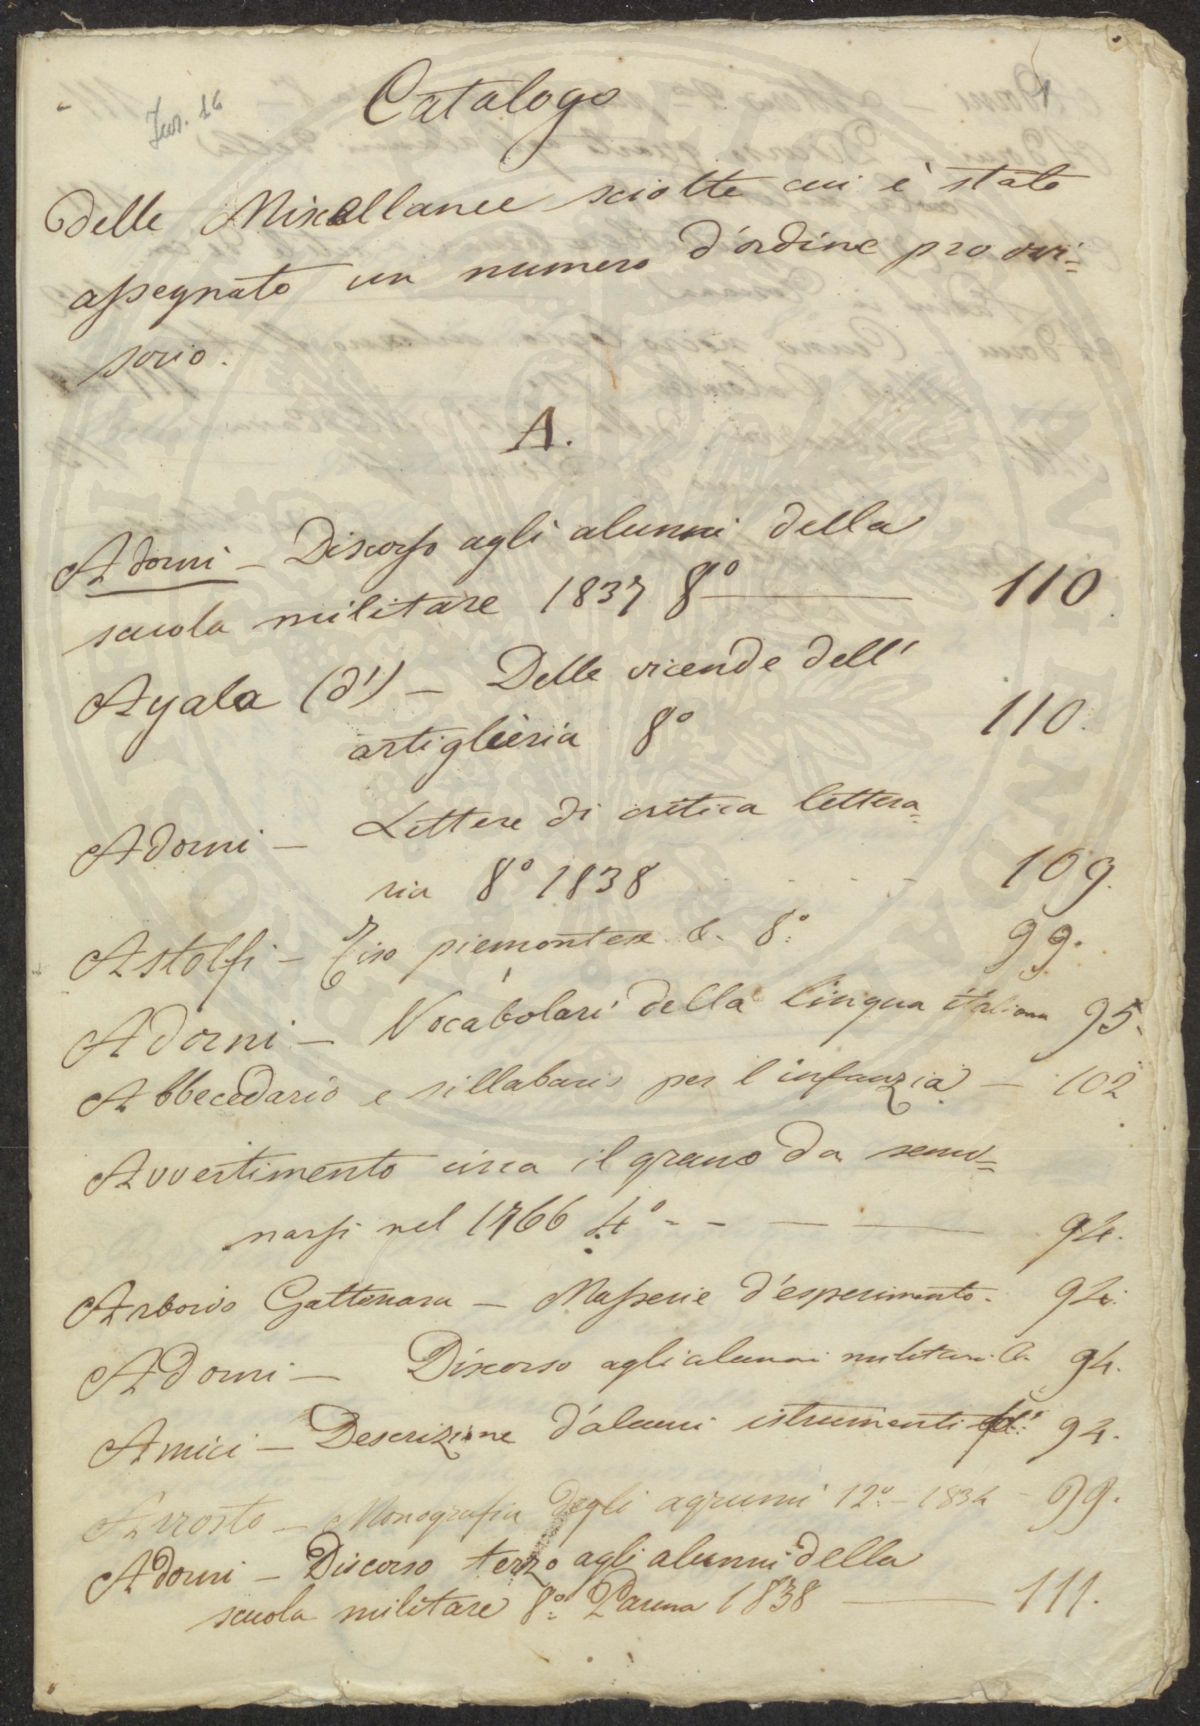 Inv. 16
1
Catalogo
Delle Miscellanee sciolte cui è stato
assegnato un numero d'ordine provvi=
sorio.
A.
Adorni - Discorso agli alunni della
scuola militare 1837 8° 110
Ayala (d') - Delle vicende dell'
artiglieria 8° 110.
Adorni - Lettere di critica lettera=
ria 8° 1838 109.
Astolfi - piemontese & 8° 99.
Adorni - Vocabolari della lingua italiana 95.
Abbecedario e sillabario per l'infanzia - 102
Avvertimento circa il grano da semi=
narsi nel 1766 4° - - 94.
Arborio Gattinara - Masserie d'esperimento. 94.
Adorni - Discorso agli alunni militari & 94.
Amici - Descrizione d'alcuni istrumenti 94.
Arrosto - Monografia degli agrumi 12° - 1834 - 99.
Adorni - Discorso terzo agli alunni della
scuola militare 8° Parma 1838 111.